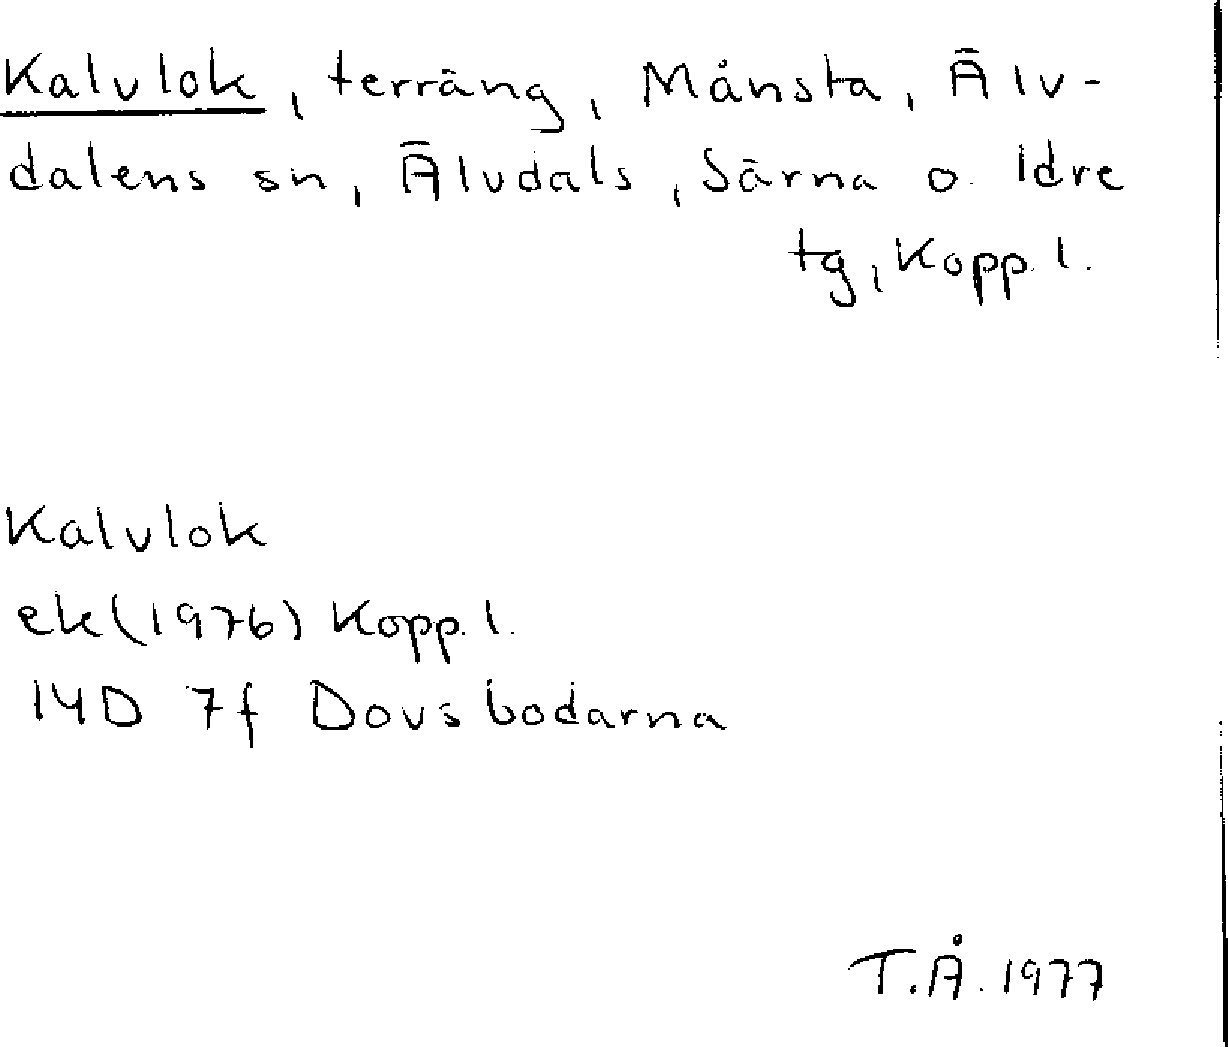 Kalvlok, terräng, Månsta, Älv-
dalens sn, Älvdals, Särna o. Idre
tg, Kopp. l.
Kalvlok
ek (1976) Kopp. l.
14D 7f Dovsbodarna
T.Å. 1977